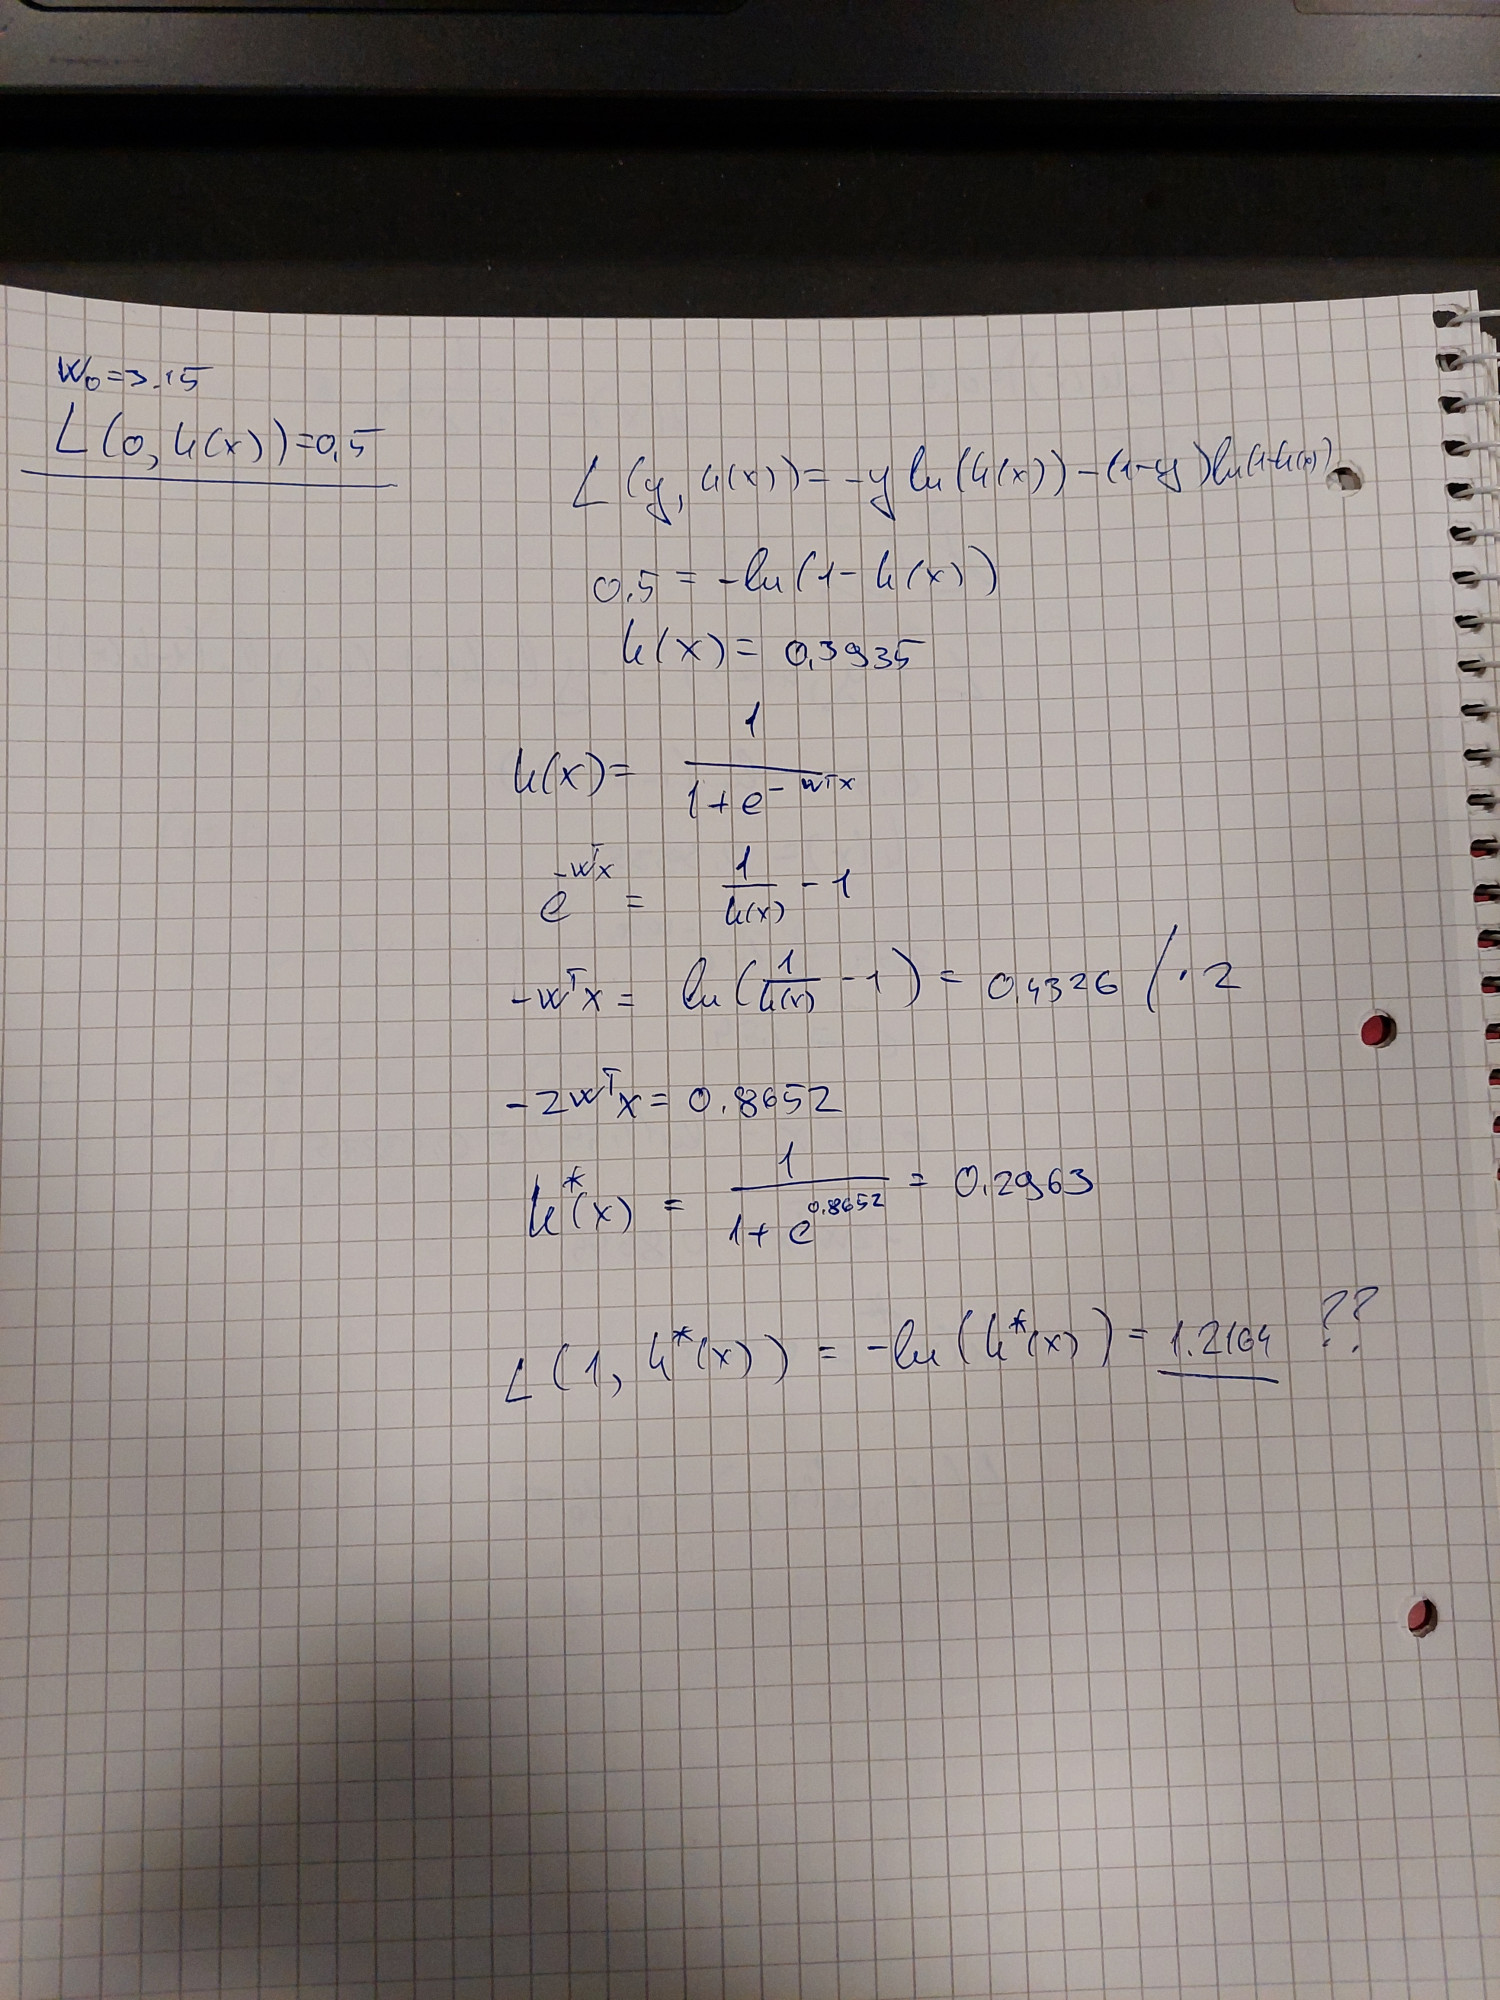 w₀=3.15
L(0, h(x))=0,5
L(y, h(x))= -y ln(h(x)) - (1-y) ln(1-h(x))
0.5 = -ln(1- h(x))
h(x)= 0,3935
h(x)= 1/(1+e^(-wᵀx))
e^(-wᵀx) = 1/h(x) - 1
-wᵀx = ln(1/h(x) - 1) = 0,4326 / · 2
-2wᵀx = 0.8652
h*(x) = 1/(1+e^(0.8652)) = 0.2963
L(1, h*(x)) = -ln(h*(x)) = 1.2164 ??